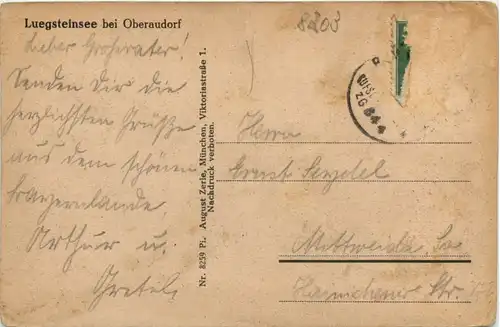 Luegsteinsee bei Oberaudorf
8203
Lieber Großvater!
Senden Dir die
herzlichsten Grüße
aus dem schönen
Bayernlande.
Arthur u.
Gretel.
Nr. 8259 Pi. August Zerle, München, Viktoriastraße 1.
Nachdruck verboten.
Herrn
Ernst Seydel
Mittweida Sa.
Hainichener Str.